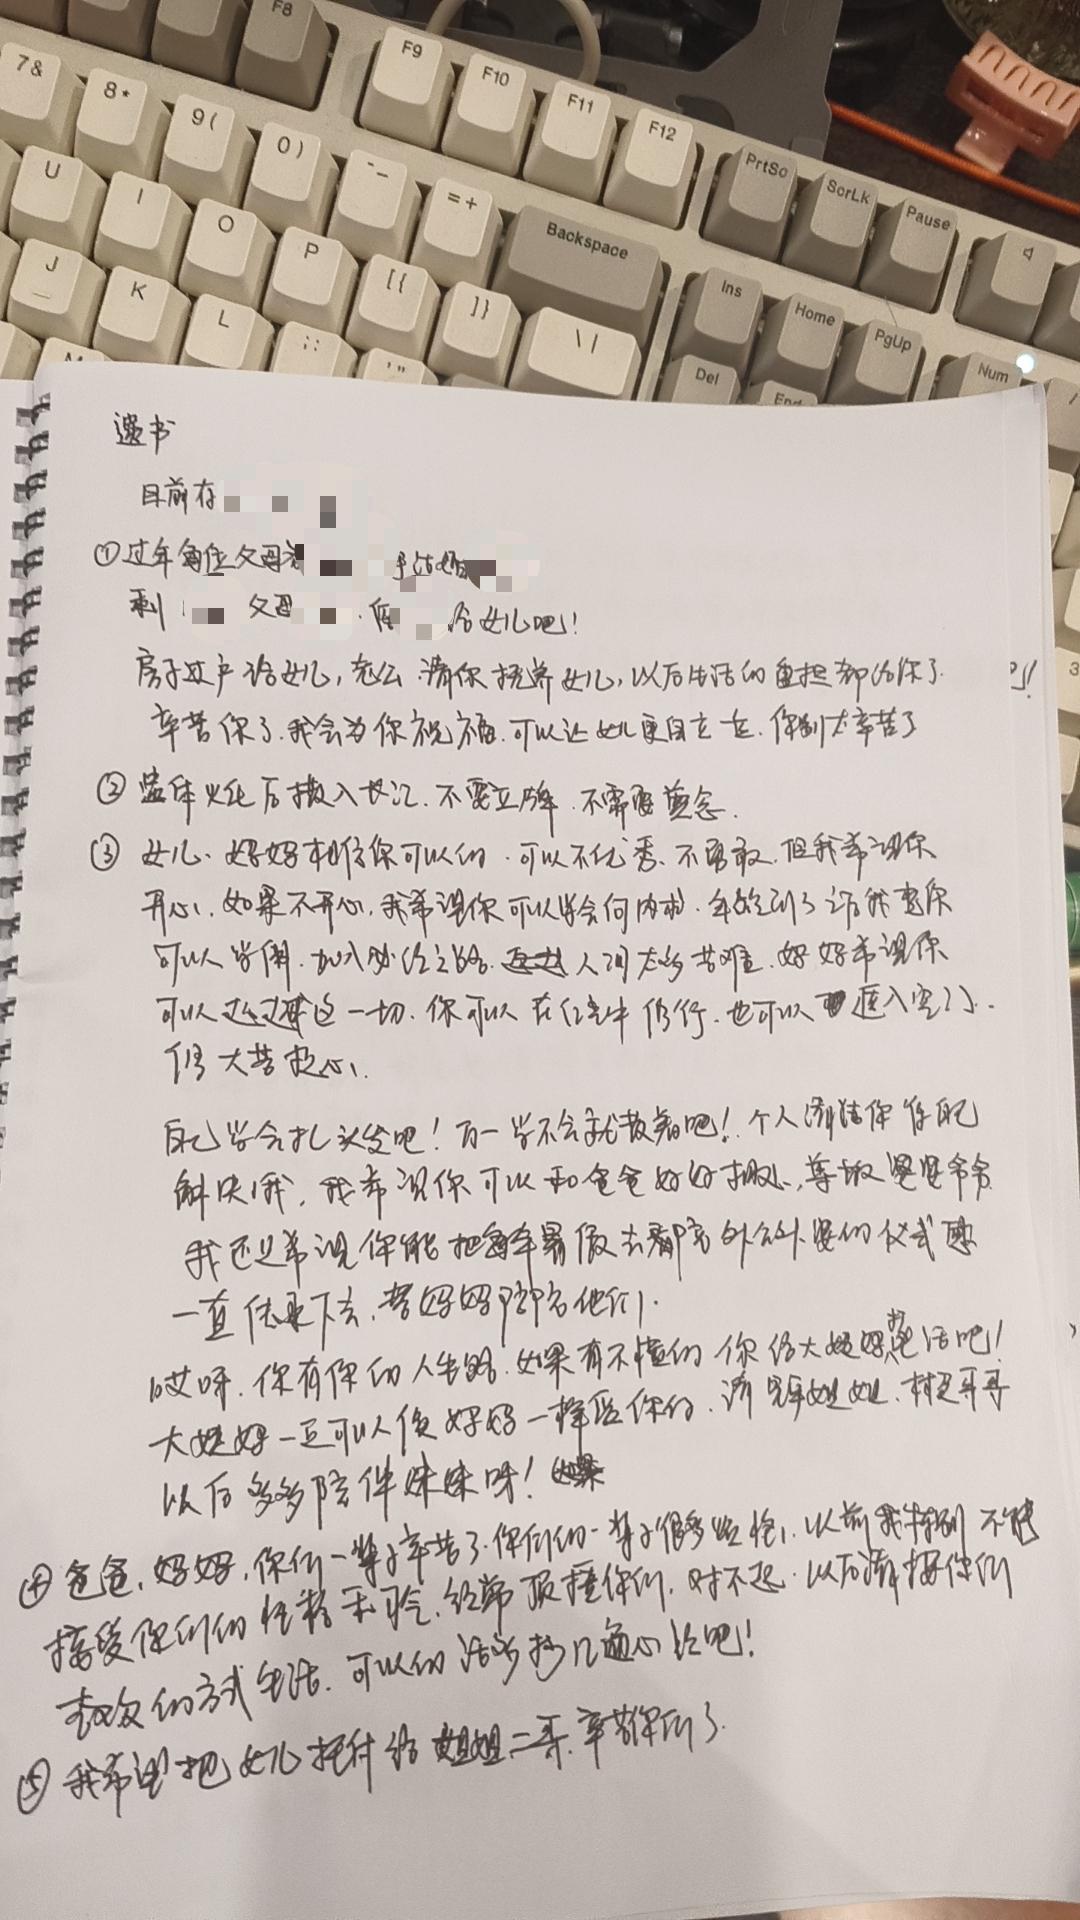 F8
F9
F10
F11
F12
PrtSc
ScrLk
Pause
7&
8*
9(
0)
- _
= +
Backspace
Ins
Home
PgUp
Num
U
I
O
P
[{
]}
\ |
Del
End
J
K
L
; :
' "
M
3
遗书
目前存
①过年每位父母
剩 父母 给女儿吧！
房子过户给女儿，老公 请你抚养女儿，以后生活的重担都给你了
辛苦你了.我会为你祝福.可以让女儿更自立些.你别太辛苦了
②遗体火化后撒入长江.不需立牌.不需要奠念.
③女儿、妈妈相信你可以的.可以不优秀.不勇敢.但我希望你
开心.如果不开心.我希望你可以学会向内求.年龄到了话我惠你
可以学佛. 人间太多苦难.妈妈希望你
可以 这一切.你可以在红尘中修行.也可以 入空门.
自己学会扎头发吧！万一学不会就散着吧！个人清洁你你自己
解决哦，我希望你可以和爸爸好好 ，尊敬婆婆爷爷
我还是希望你能把每年暑假去 外公外婆的仪式感
一直传承下去，替妈妈陪陪他们.
哎呀.你有你的人生路.如果有不懂的你给大姨妈打电话吧！
大姨妈一定可以像妈妈一样爱你的.请 姐姐. 哥哥
以后多多陪伴妹妹呀！
④爸爸，妈妈，你们一辈子辛苦了.你们的一辈子很多 ，以前我特别不能
接受你们的性格 ，经常顶撞你们，对不起.以后请按你们
喜欢的方式生活.可以的话多抄几遍心经吧！
⑤我希望把女儿托付给姐姐二哥.辛苦你们了.